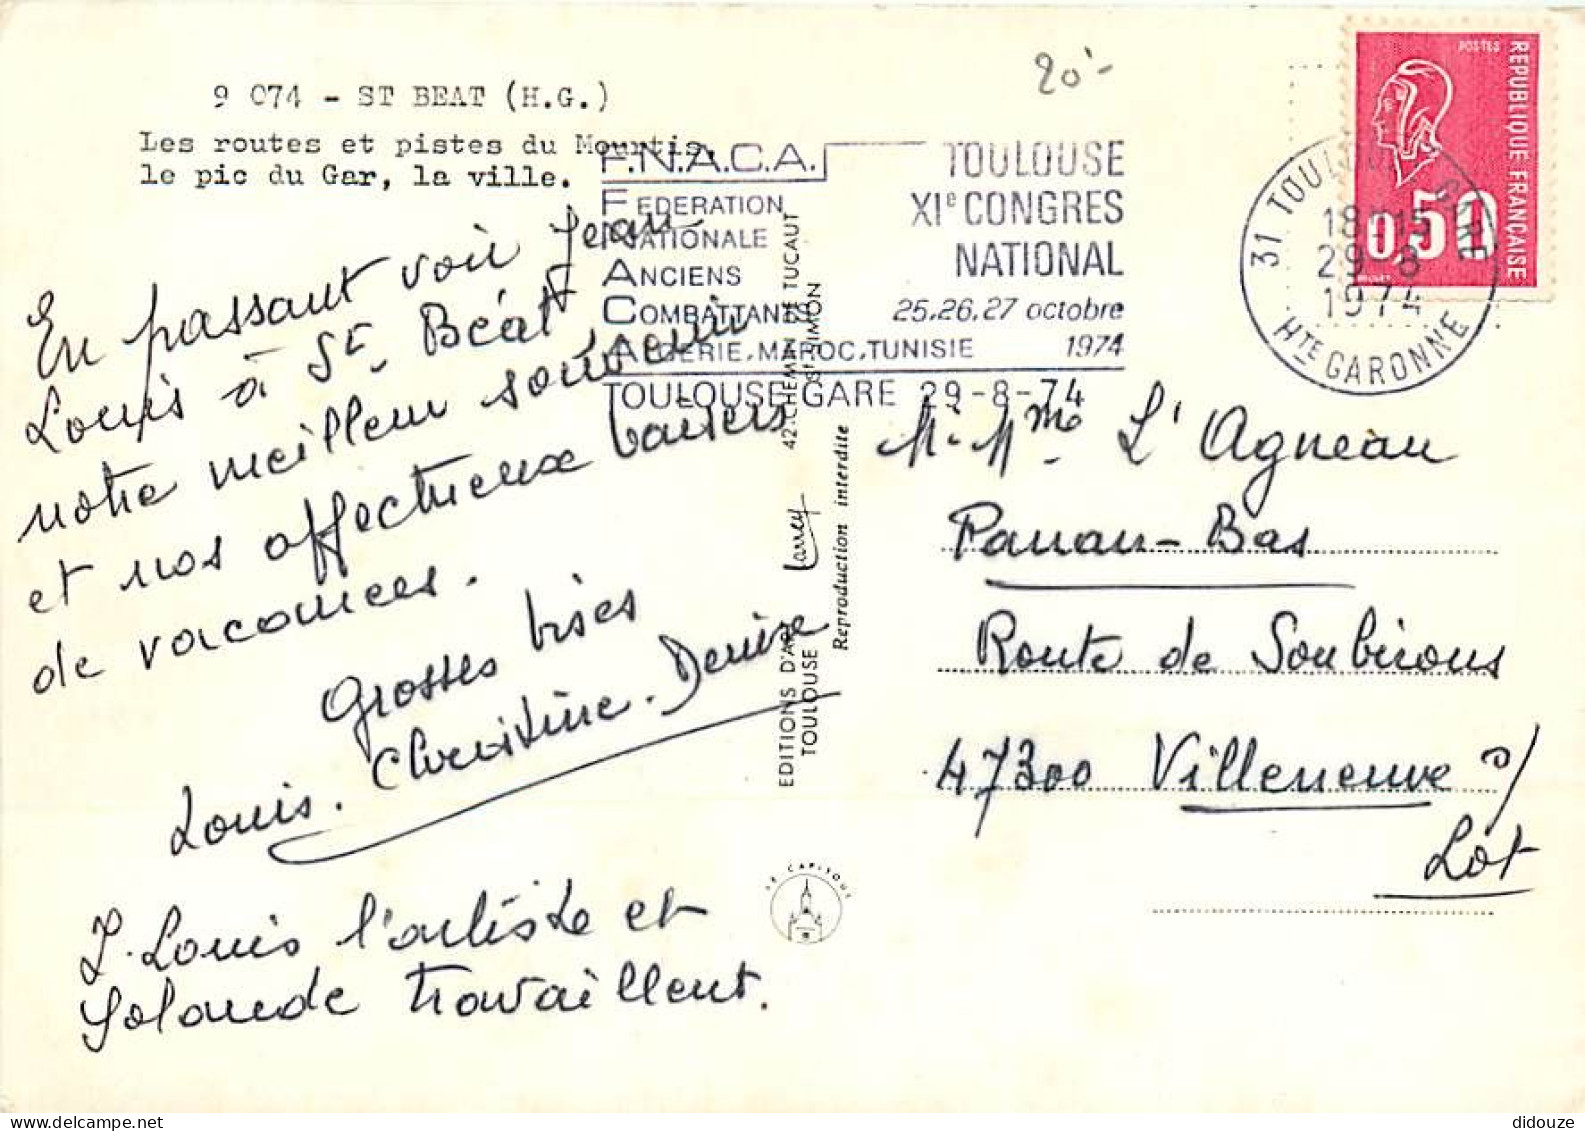 20.-
9 074 - ST BEAT (H.G.)
Les routes et pistes du Mourtis,
le pic du Gar, la ville.
En passant voir Jean
Louis à St. Béat
notre meilleur souvenir
et nos affectueux baisers
de vacances.
Grosses bises
Louis. Christine. Denise
J. Louis l'artiste et
Yolande travaillent.
F.N.A.C.A.
FEDERATION
NATIONALE
ANCIENS
COMBATTANTS
ALGERIE.MAROC.TUNISIE
TOULOUSE
XIe CONGRES
NATIONAL
25.26.27 octobre
1974
TOULOUSE GARE 29-8-74
31 TOULOUSE GARE
18H15
29-8
1974
HTE GARONNE
POSTES
REPUBLIQUE FRANÇAISE
0,50
EDITIONS D'ART Larrey 42.CHEMIN DE TUCAUT
TOULOUSE ST SIMON
Reproduction interdite
LE CAPITOUL
M. Mme L'Agneau
Panau-Bas
Route de Soubirous
47300 Villeneuve s/
Lot
didouze